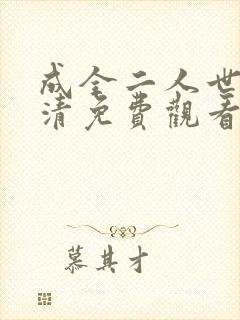 成全二人世
清免費觀看
慕其才